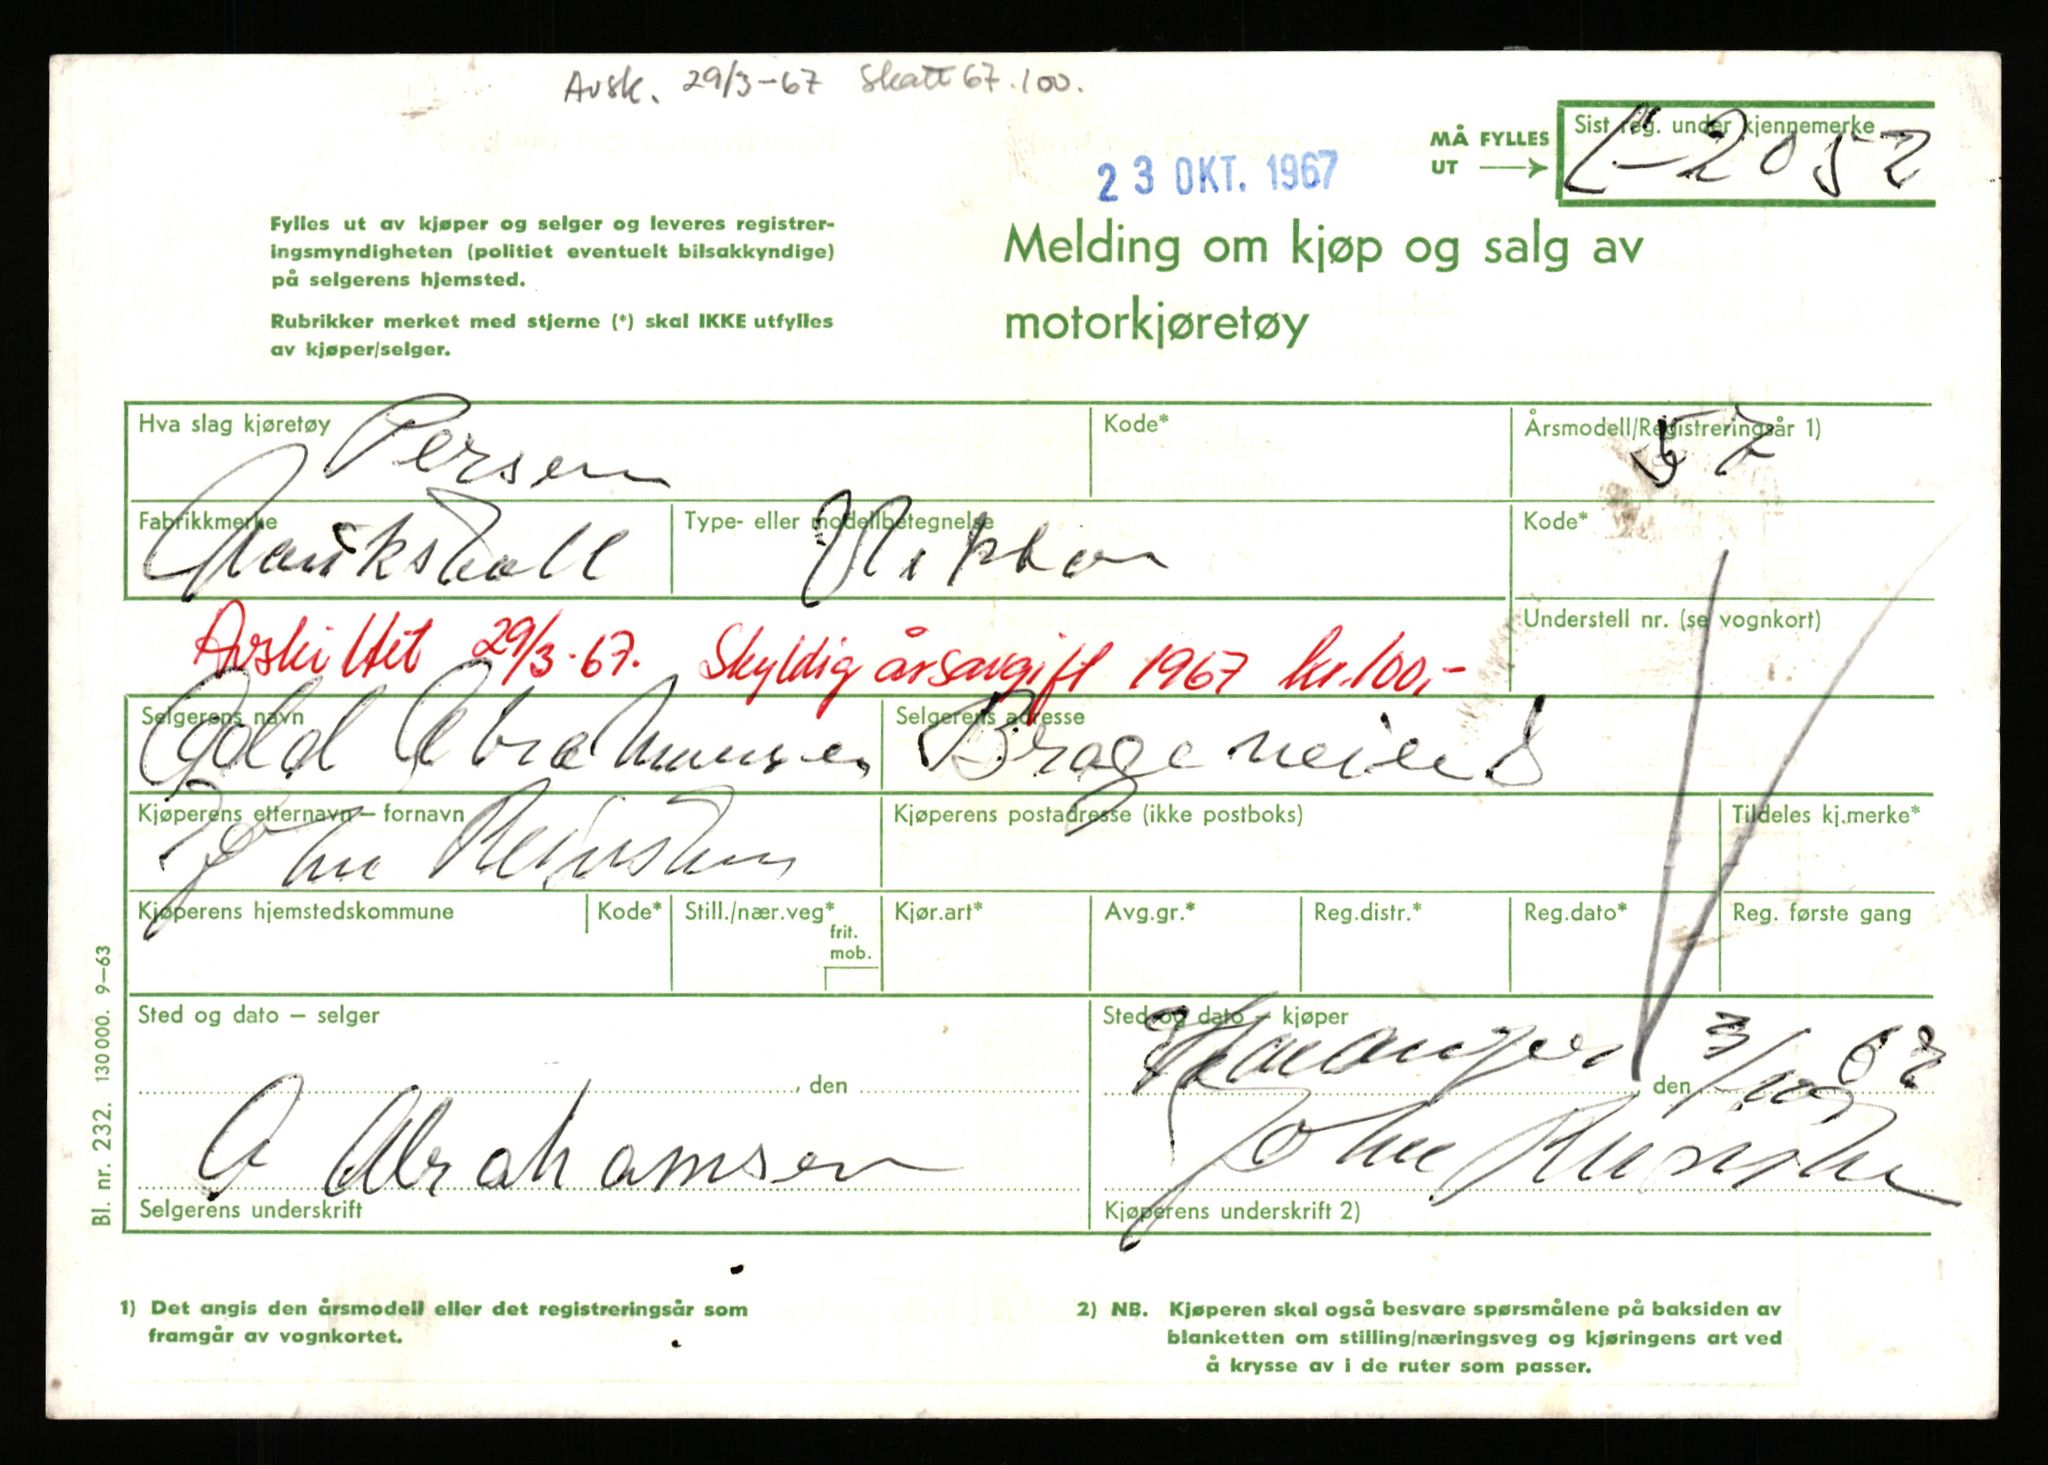 Avsk. 29/3-67 Skatt 67.100.
MÅ FYLLES UT
Sist reg. under kjennemerke
L-2052
23 OKT. 1967
Fylles ut av kjøper og selger og leveres registrer-
ingsmyndigheten (politiet eventuelt bilsakkyndige)
på selgerens hjemsted.
Rubrikker merket med stjerne (*) skal IKKE utfylles
av kjøper/selger.
Melding om kjøp og salg av
motorkjøretøy
Hva slag kjøretøy
Person
Kode*
Årsmodell/Registreringsår 1)
57
Fabrikkmerke
Vauxhall
Type- eller modellbetegnelse
Kode*
Avskiltet 29/3-67. Skyldig årsavgift 1967 kr. 100,-
Understell nr. (se vognkort)
Selgerens navn
Abrahamsen
Selgerens adresse
Brageveien 8
Kjøperens etternavn – fornavn
John
Kjøperens postadresse (ikke postboks)
Tildeles kj.merke*
Kjøperens hjemstedskommune
Kode*
Still./nær.veg*
frit.
mob.
Kjør.art*
Avg.gr.*
Reg.distr.*
Reg.dato*
Reg. første gang
Sted og dato – selger
, den
Sted og dato – kjøper
Stavanger, den 3/10 67
A Abrahamsen
John
Selgerens underskrift
Kjøperens underskrift 2)
Bl. nr. 232. 130 000. 9–63
1) Det angis den årsmodell eller det registreringsår som
framgår av vognkortet.
2) NB. Kjøperen skal også besvare spørsmålene på baksiden av
blanketten om stilling/næringsveg og kjøringens art ved
å krysse av i de ruter som passer.